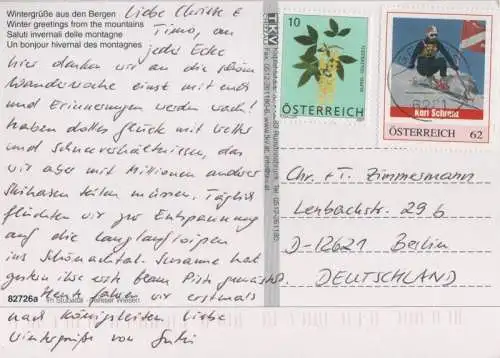 Wintergrüße aus den Bergen
Winter greetings from the mountains
Saluti invernali delle montagne
Un bonjour hivernal des montagnes
Liebe Christa &
Timo, an
jeder Ecke
hier denken wir an die schöne
Wanderwoche einst mit euch
und Erinnerungen werden wach!
haben tolles Glück mit Wetter
und Schneeverhältnissen, das
wir aber mit Millionen anderer
Skihasen teilen müssen. Täglich
flüchten wir zur Entspannung
auf die Langlaufloipen
ins Schönachtal. Susanne hat
gestern ihre erste Piste gemeistert
82726a Im Stubaital
Heute fahren wir erstmals
nach Königsleiten Liebe
Wintergrüße von
TKV
10
ÖSTERREICH
Karl Schranz
ÖSTERREICH 62
Chr. + T. Zimmermann
Lenbachstr. 29 b
D-12621 Berlin
DEUTSCHLAND